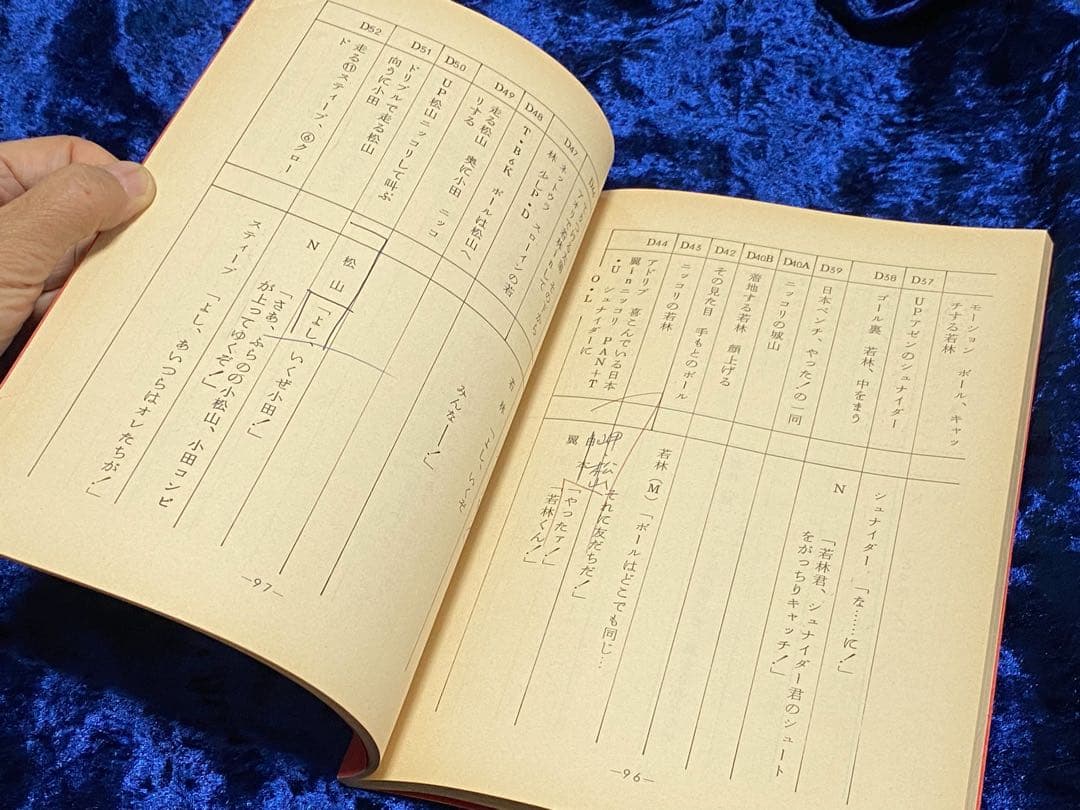 モーション ボール、キャッ
チする若林
D37
UPアゼンのシュナイダー
シュナイダー 「な……に!」
D38
ゴール裏 若林、中をまう
D39
日本ベンチ、やった!の一同
N 「若林君、シュナイダー君のシュート
をがっちりキャッチ!」
D40A
ニッコリの城山
D40B
着地する若林 顔上げる
D42
その見た目 手もとのボール
D43
ニッコリの若林
若林(M) 「ボールはどこでも同じ…
それに友だちだ!」
D44
アドリブ 喜こんでいる日本
翼inニッコリ PAN+T
・U シュナイダーに
O・L
岬、松山
日本 「やったァ!」
翼 「若林くん!」
―96―
D47
D48
ネットウラ
林 少しP・D スローインの若
若林 「よし、いくぞ
みんなー!」
D49
T・B6K ボールは松山へ
走る松山 奥に小田 ニッコ
リする
D50
UP松山ニッコリして叫ぶ
松山 「よし、いくぜ小田!」
D51
ドリブルで走る松山
向うに小田
N 「さあ、ふらのの小松山、小田コンビ
が上ってゆくぞ!」
D52
走る⑪スティーブ、⑥クロー
ド
スティーブ 「よし、あいつらはオレたちが!」
―97―